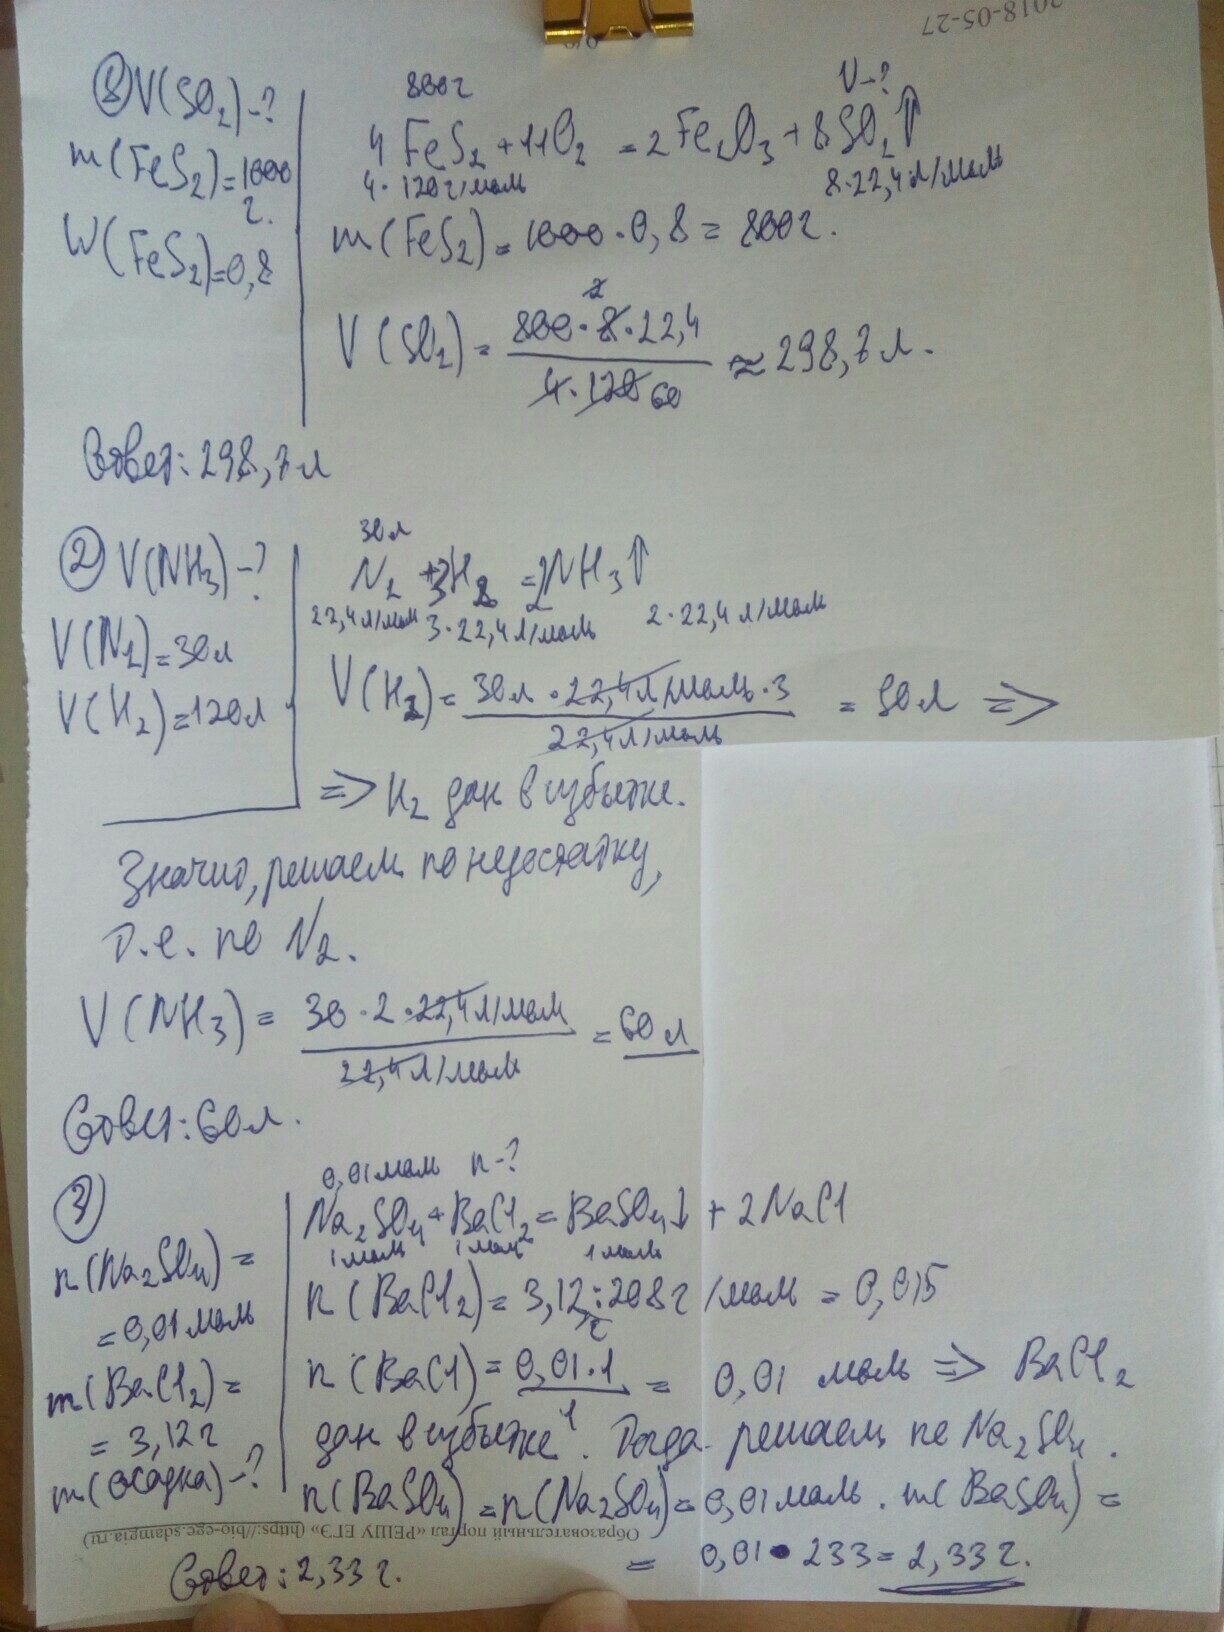 2018-05-27
① V(SO₂)-?
m(FeS₂)=1000 г.
W(FeS₂)=0,8
800г V-?
4FeS₂ + 11O₂ = 2Fe₂O₃ + 8SO₂↑
4·120г/моль 8·22,4л/моль
m(FeS₂)=1000·0,8=800г.
V(SO₂)= 800·8·22,4 / 4·120 ≈ 298,7л.
2 60
Ответ: 298,7л
② V(NH₃)-?
V(N₂)=30л
V(H₂)=120л
30л
N₂ + 3H₂ = 2NH₃↑
22,4л/моль 3·22,4л/моль 2·22,4л/моль
V(H₂)= 30л·22,4л/моль·3 / 22,4л/моль = 90л =>
=> H₂ дан в избытке.
Значит, решаем по недостатку,
т.е. по N₂.
V(NH₃)= 30·2·22,4л/моль / 22,4л/моль = 60л
Ответ: 60л.
③
n(Na₂SO₄)=
=0,01моль
m(BaCl₂)=
=3,12г
m(осадка)-?
0,01моль n-?
Na₂SO₄ + BaCl₂ = BaSO₄↓ + 2NaCl
1моль 1моль 1моль
n(BaCl₂)=3,12г:208г/моль=0,015
n(BaCl)= 0,01·1 / 1 = 0,01 моль => BaCl₂
дан в избытке. Тогда решаем по Na₂SO₄.
n(BaSO₄)=n(Na₂SO₄)=0,01моль. m(BaSO₄)=
= 0,01·233=2,33г.
Образовательный портал «РЕШУ ЕГЭ» (https://bio-ege.sdamgia.ru)
Ответ: 2,33г.